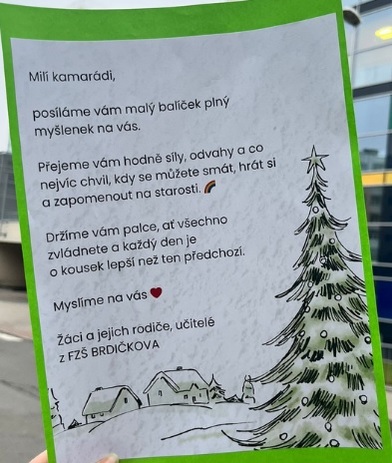 Milí kamarádi,
posíláme vám malý balíček plný
myšlenek na vás.
Přejeme vám hodně síly, odvahy a co
nejvíc chvil, kdy se můžete smát, hrát si
a zapomenout na starosti. 🌈
Držíme vám palce, ať všechno
zvládnete a každý den je
o kousek lepší než ten předchozí.
Myslíme na vás ❤️
Žáci a jejich rodiče, učitelé
z FZŠ BRDIČKOVA